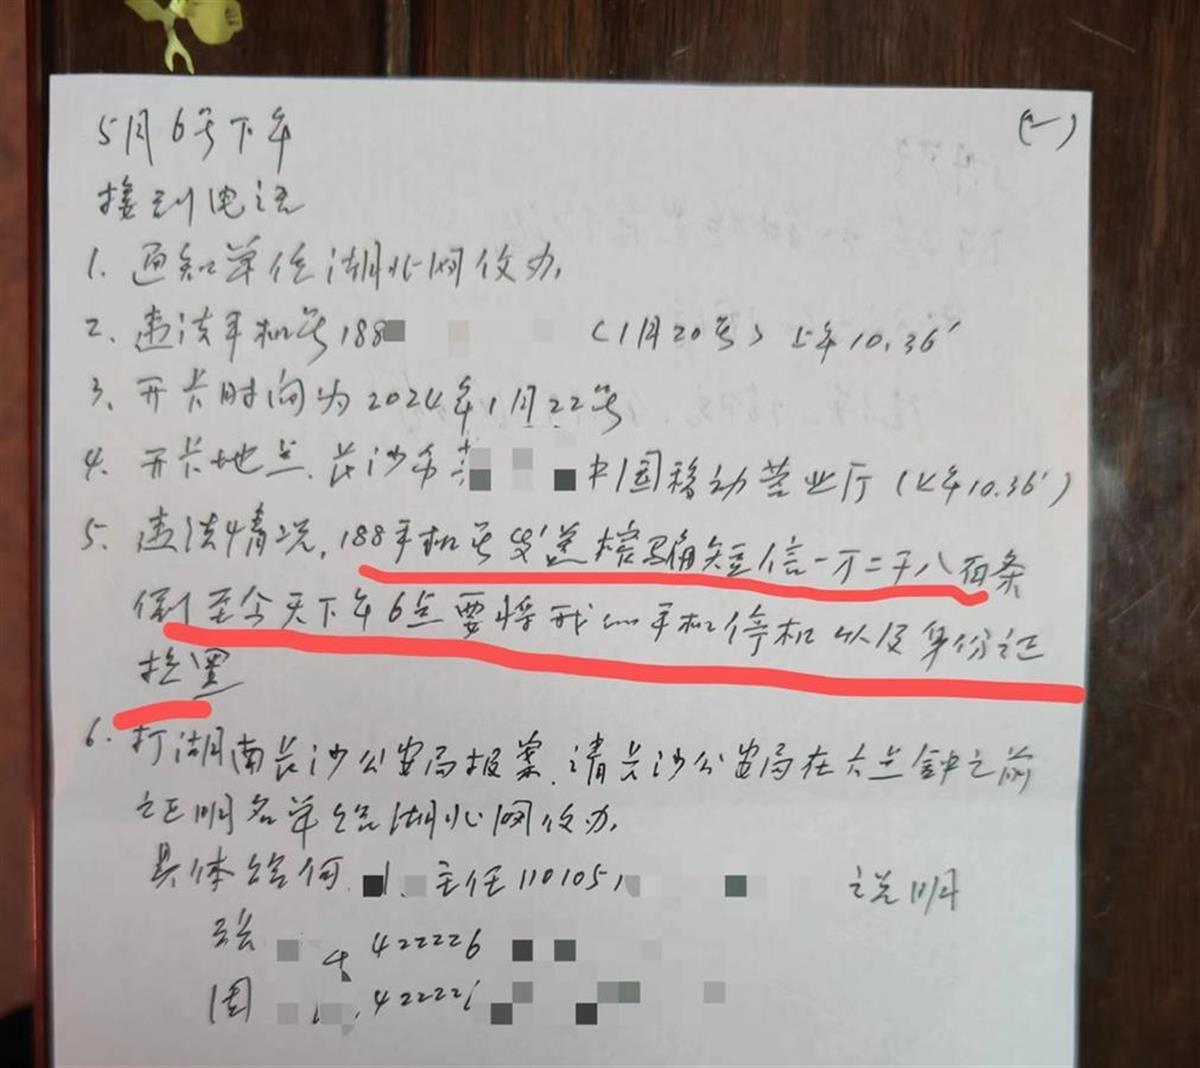 (一)
5月6号下午
接到电话
1. 通知单位湖北网侦办,
2. 违法手机号188 (1月20号) 上午10.36'
3. 开卡时间为2024年1月22号
4. 开卡地点.长沙市 中国移动营业厅(上午10.36')
5. 违法情况,188手机号发送 骗短信一万二千八百条
到至今天下午6点要将我的手机停机以及身份证
6. 打湖南长沙公安局报案.请长沙公安局在六点钟之前
证明名单给湖北网侦办,
具体给何 主任110105 说明
张 422226
周 42222